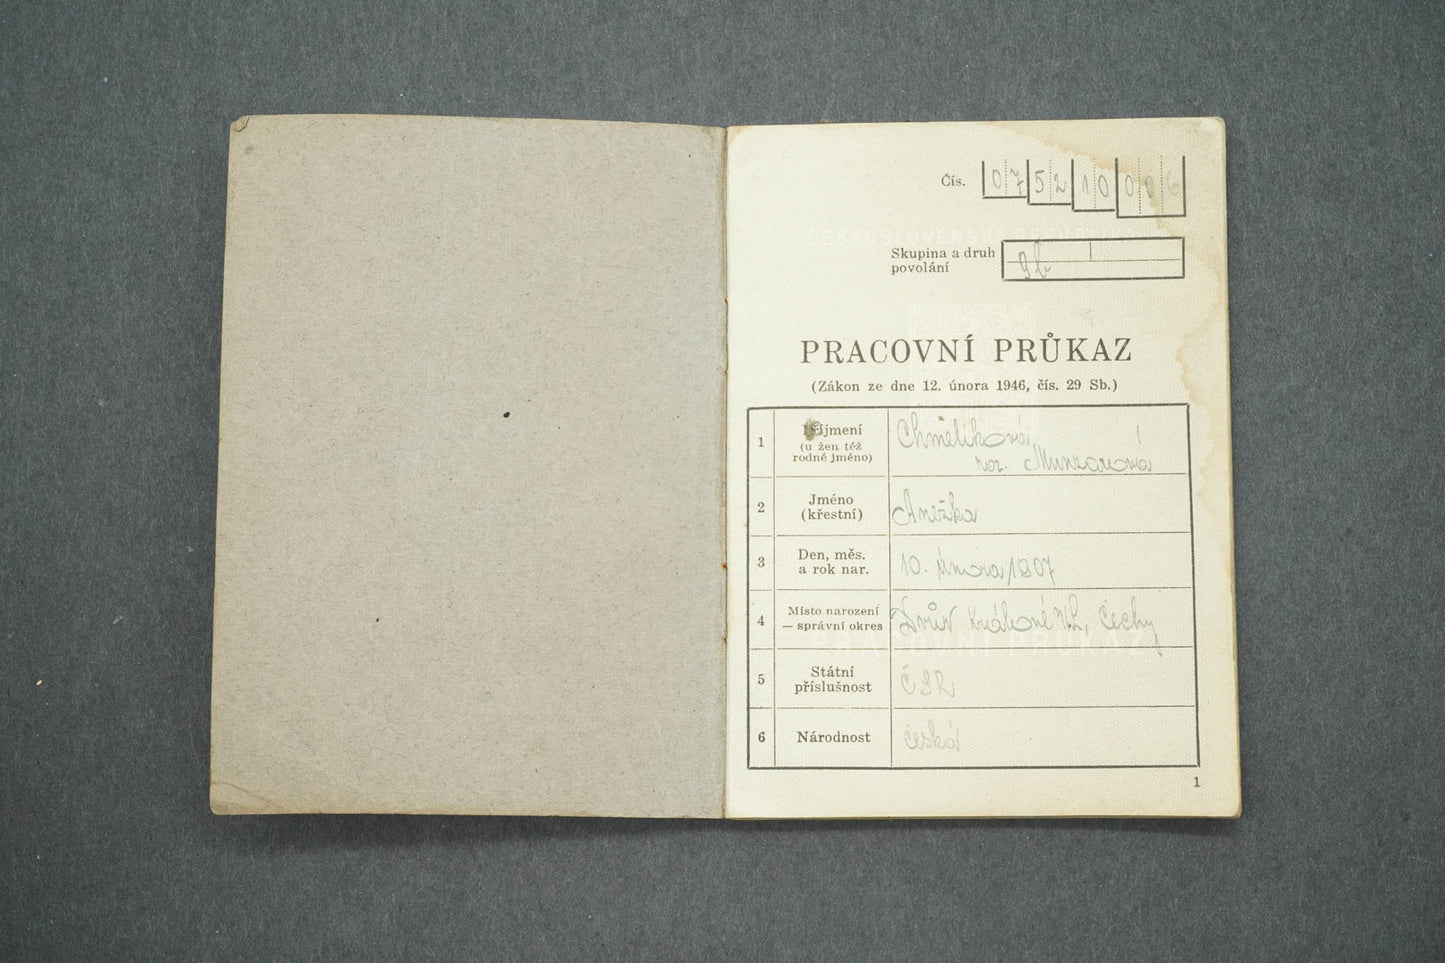 Čís. 07 52 10 006
ČESKOSLOVENSKÁ REPUBLIKA
Skupina a druh
povolání
9b
PRACOVNÍ PRŮKAZ
(Zákon ze dne 12. února 1946, čís. 29 Sb.)
1 Příjmení
(u žen též
rodné jméno)
Chmelíková,
roz. Munzarová
2 Jméno
(křestní)
Anežka
3 Den, měs.
a rok nar.
10. února 1807
4 Místo narození
— správní okres
Dvůr Králové n.L, Čechy
5 Státní
příslušnost
ČSR
6 Národnost
česká
1